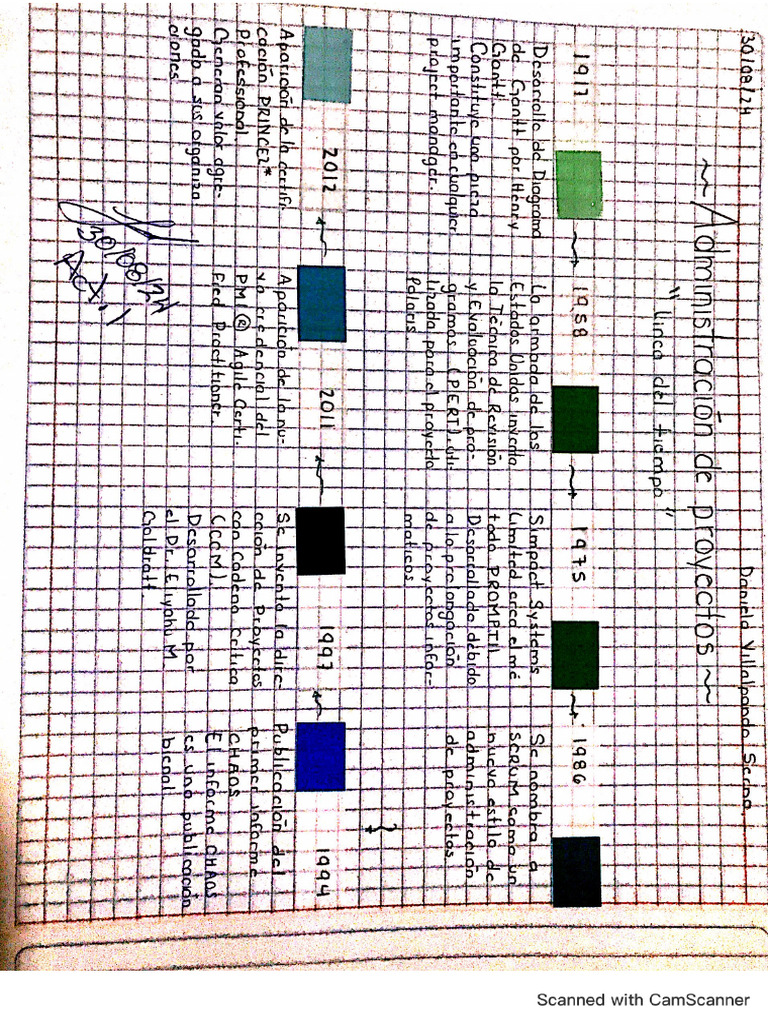 30/08/24
Daniela Villalpando Serna
~Administración de proyectos~
"Linea del tiempo"
1917
Desarrollo de Diagrama
de Gantt por Henry
Gantt.
Constituye una pieza
importante en cualquier
project manager.
1958
La armada de los
Estados Unidos inventa
la Técnica de Revisión
y Evaluación de pro-
gramas (PERT), uti
lizada para el proyecto
Polaris
1975
Simpact Systems
Limited crea el mé
todo PROMPTII
Desarrollado debido
a la prolongación
de proyectos infor-
maticos
1986
Se nombra a
SCRUM como un
nuevo estilo de
administración
de proyectos
1994
Publicación del
primer informe
CHAOS
El informe CHAOS
es una publicación
bienal
1997
Se inventa la dire-
cción de Proyectos
con Cadena Critica
(CCM).
Desarrollado por
el Dr. Eliyahu M.
Goldratt
2011
Aparición de la nu-
va credencial del
PMI® Agile Certi-
fied Practitioner.
2012
Aparición de la certifi
cación PRINCE2*
Professional
Generan valor agre-
gado a sus organiza
ciones
30/08/24
Act. 1
Scanned with CamScanner